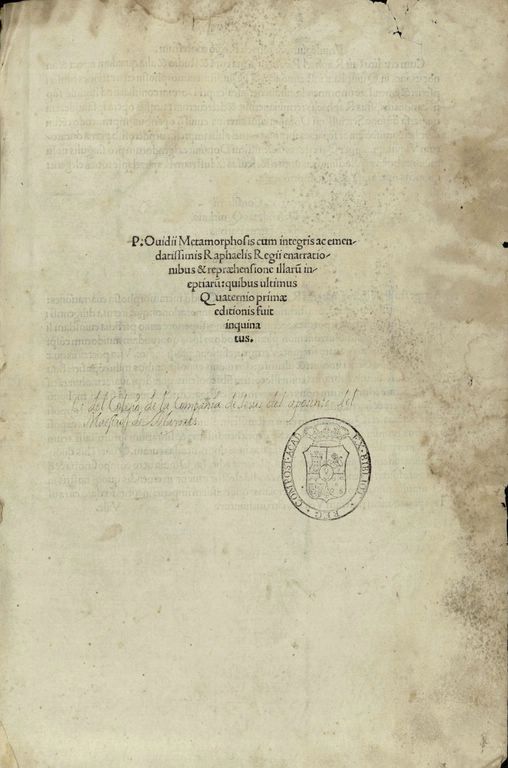 P. Ouidii Metamorphosis cum integris ac emen-
datissimis Raphaelis Regii enarratio-
nibus & repræhensione illarū in-
eptiarū: quibus ultimus
Quaternio primæ
editionis fuit
inquina
tus.
del Colegio de la Compañia de Jesus del aposento del
Maestro de
EX · BIBLIOT · REG · COMPOST · ACAD